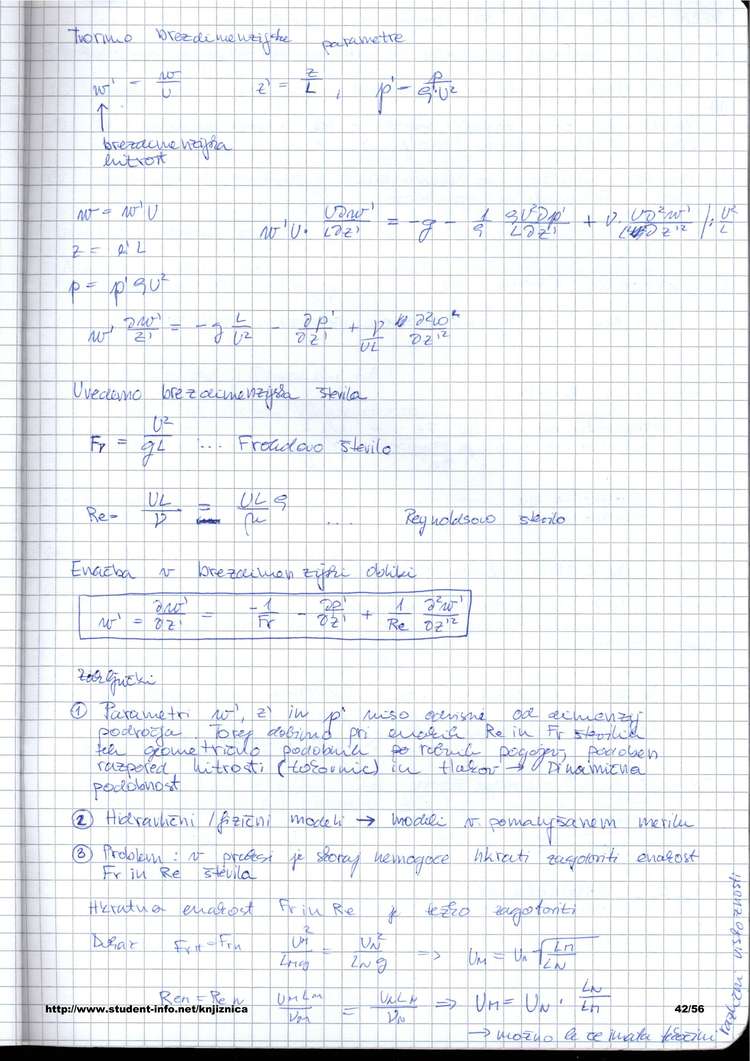 Tvorimo brezdimenzijske parametre
w' = w/U   z' = z/L ,   p' - p/ρ·U²
↑
brezdimenzijska
hitrost
w = w'U   w'U · U∂w'/L∂z' = -g - 1/ρ ρU²∂p'/L∂z' + ν · U∂²w'/L²∂z'² /: U²/L
z = z'L
p = p'ρU²
w' ∂w'/z' = -g L/U² - ∂p'/∂z' + ν/UL ∂²w'/∂z'²
Uvedemo brezdimenzijska števila
Fr = U²/gL ... Froudovo število
Re = UL/ν = ULρ/μ .... Reynoldsovo število
Enačba v brezdimenzijski obliki
w' = ∂w'/∂z' = -1/Fr - ∂p'/∂z' + 1/Re ∂²w'/∂z'²
Zaključki
① Parametri w', z' in p' niso odvisne od dimenzij
področja. Torej dobimo pri enakih Re in Fr številih
ter geometrično podobnih robnih pogojev podoben
razpored hitrosti (tokovnic) in tlakov → Dinamična
podobnost
② Hidravlični / fizični modeli → modeli v pomanjšanem merilu
③ Problem: v praksi je skoraj nemogoče hkrati zagotoviti enakost
Fr in Re števila
Hkratno enakost Fr in Re je težko zagotoviti
Dokaz   Fr_M = Fr_N   U_M²/L_M g = U_N²/L_N g ⇒ U_M = U_N √(L_M/L_N)
Re_M = Re_N   U_M L_M/ν_M = U_N L_N/ν_N ⇒ U_M = U_N · L_N/L_M
http://www.student-info.net/knjiznica   42/56
→ možno le če imata tekočini
različni viskoznosti